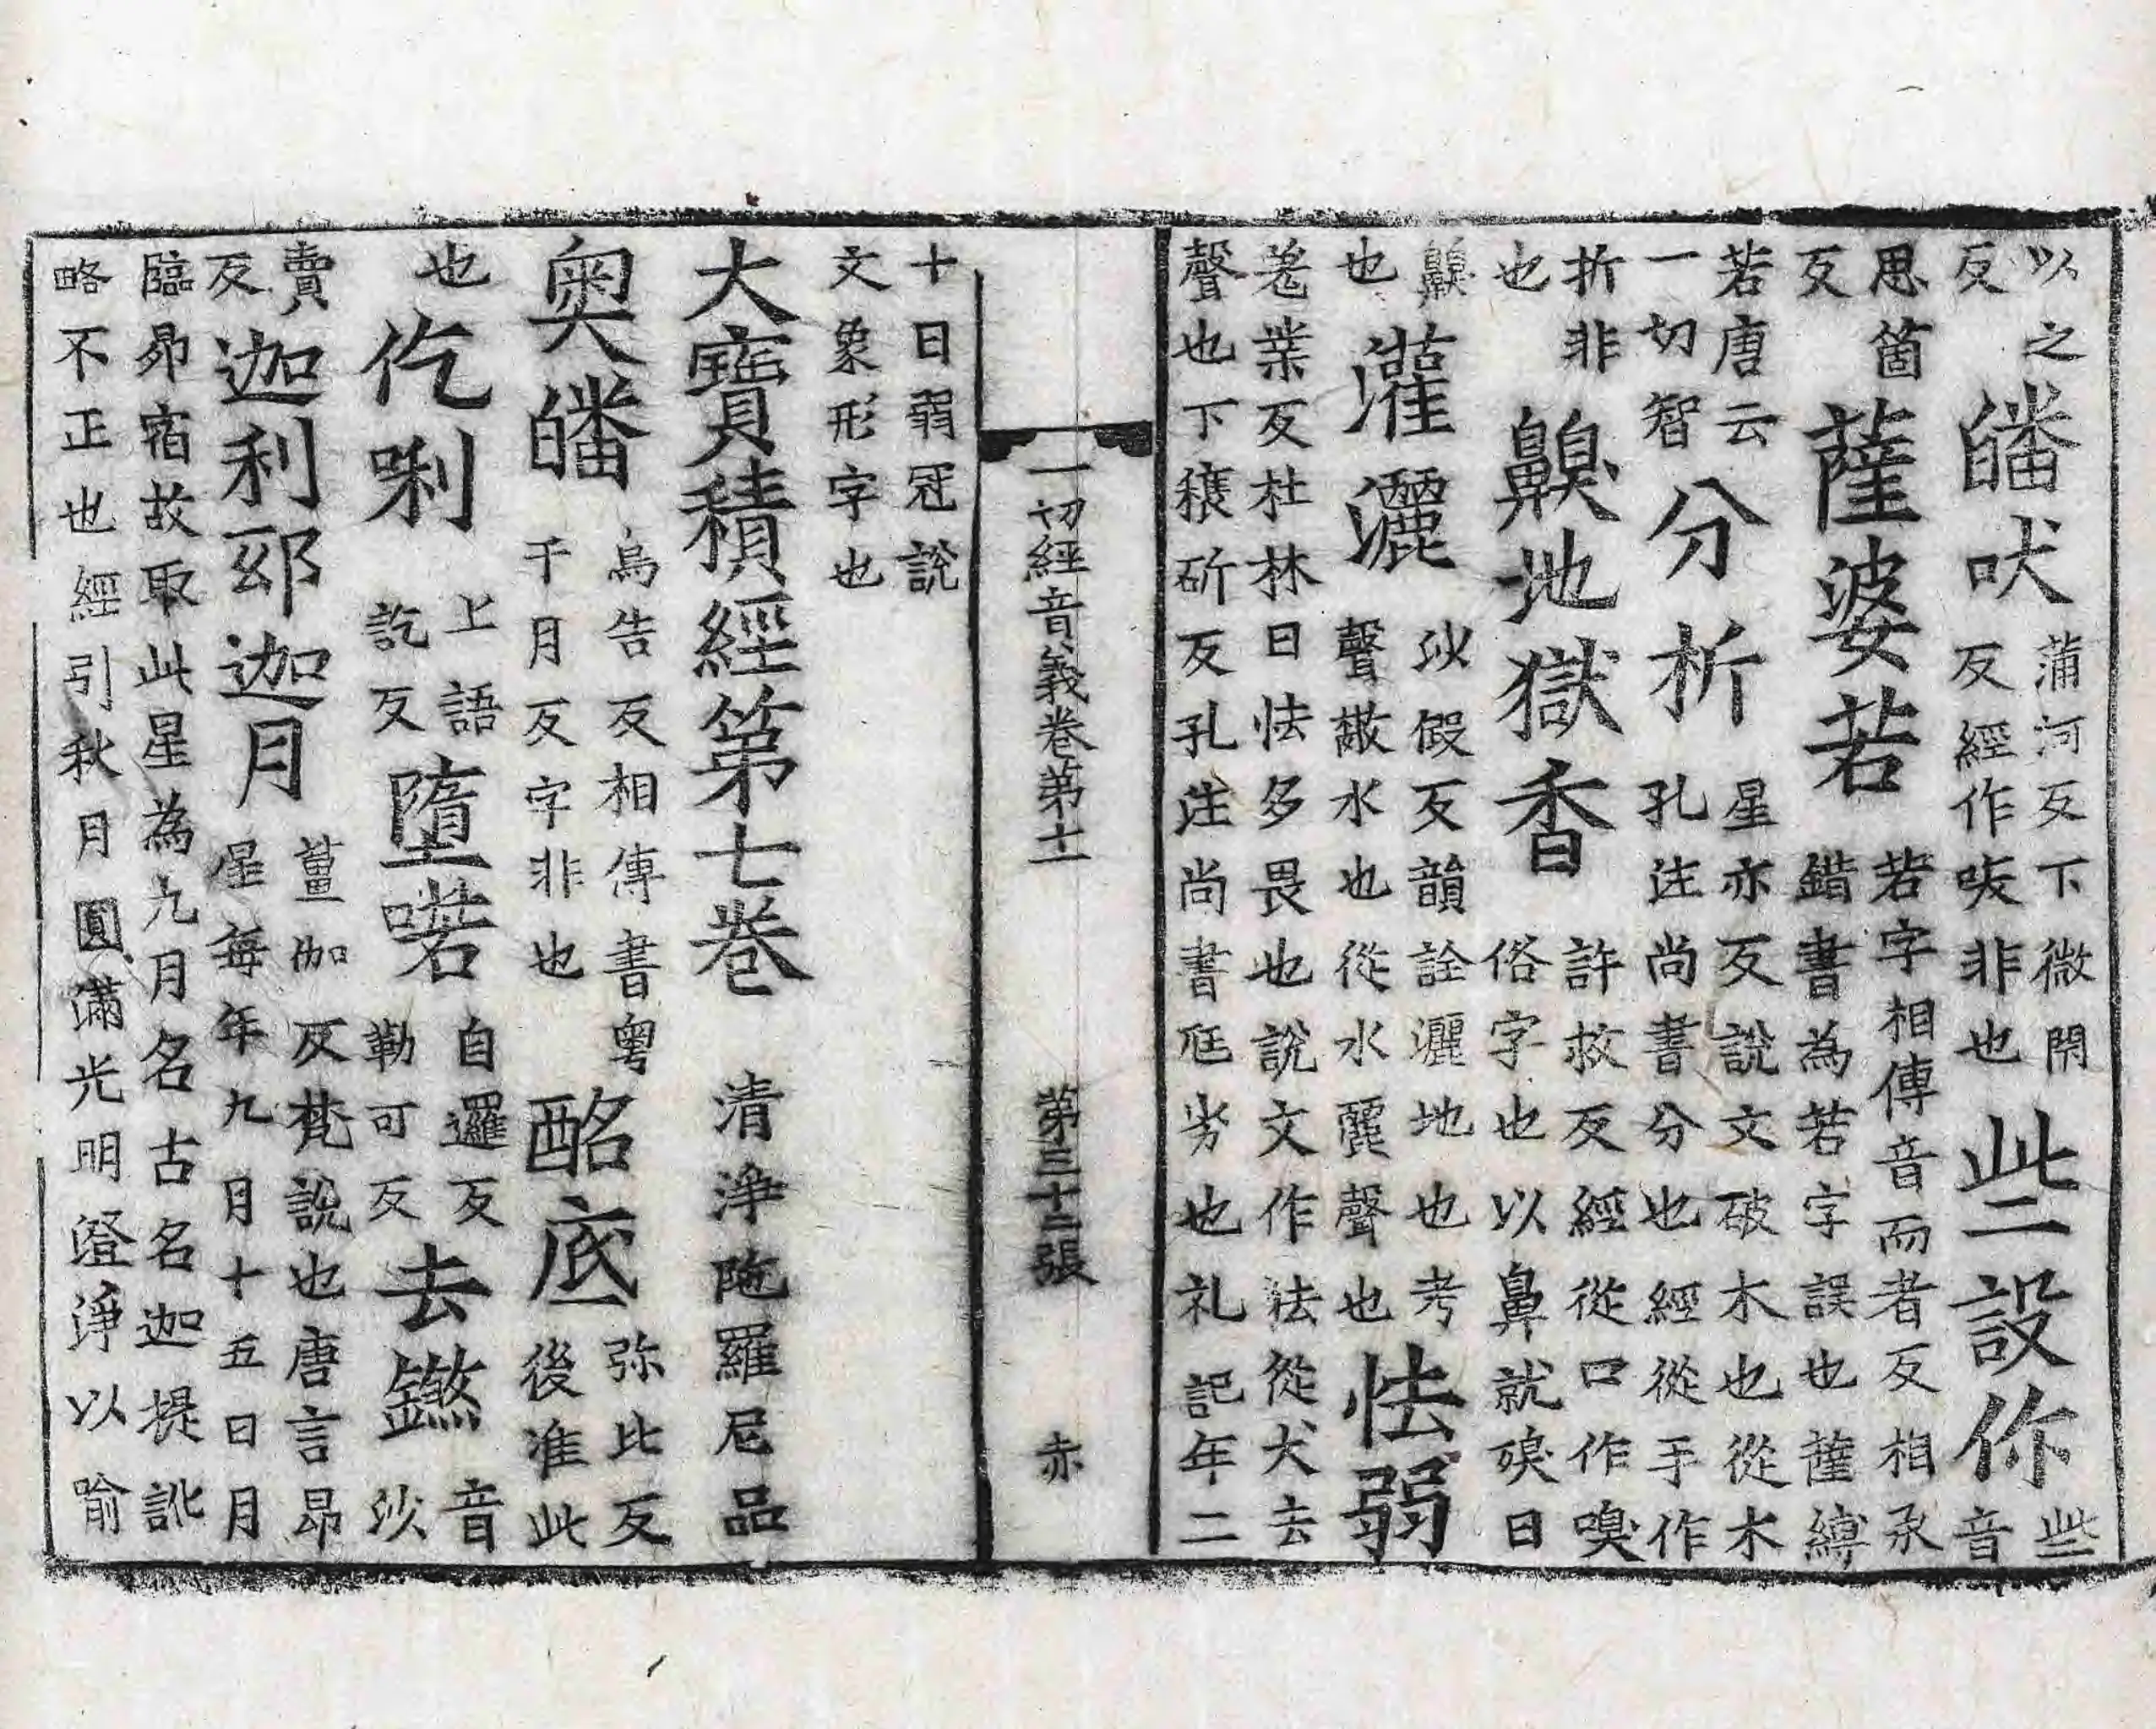 以之反皤吠蒲河反下微閇反經作㕹非也些設你些音
思箇反薩婆若若字相傳音而者反相承錯書為若字誤也薩縛
若唐云一切智分析星亦反說文破木也從木孔注尚書分也經從手作
折非也齅地獄香許救反經從口作嗅俗字也以鼻就臰曰
齅也灌灑沙假反韻詮灑地也考聲散水也從水麗聲也怯弱
羗業反杜林曰怯多畏也說文作㹤從犬去
聲也下穰斫反孔注尚書尫劣也礼記年二
一切經音義卷第十一 第三十二張 赤
十曰弱冠說
文象形字也
大寶積經第七卷 清淨陁羅尼品
奧皤烏告反相傳書粵千月反字非也酩底弥比反後准此
也仡唎上語訖反墮喏自邏反勒可反去音沙
賣反迦利邸迦月薑伽反梵說也唐言昴星每年九月十五日月
臨昴宿故取此星為九月名古名迦提訛
略不正也經引秋月圓滿光明澄淨以喻